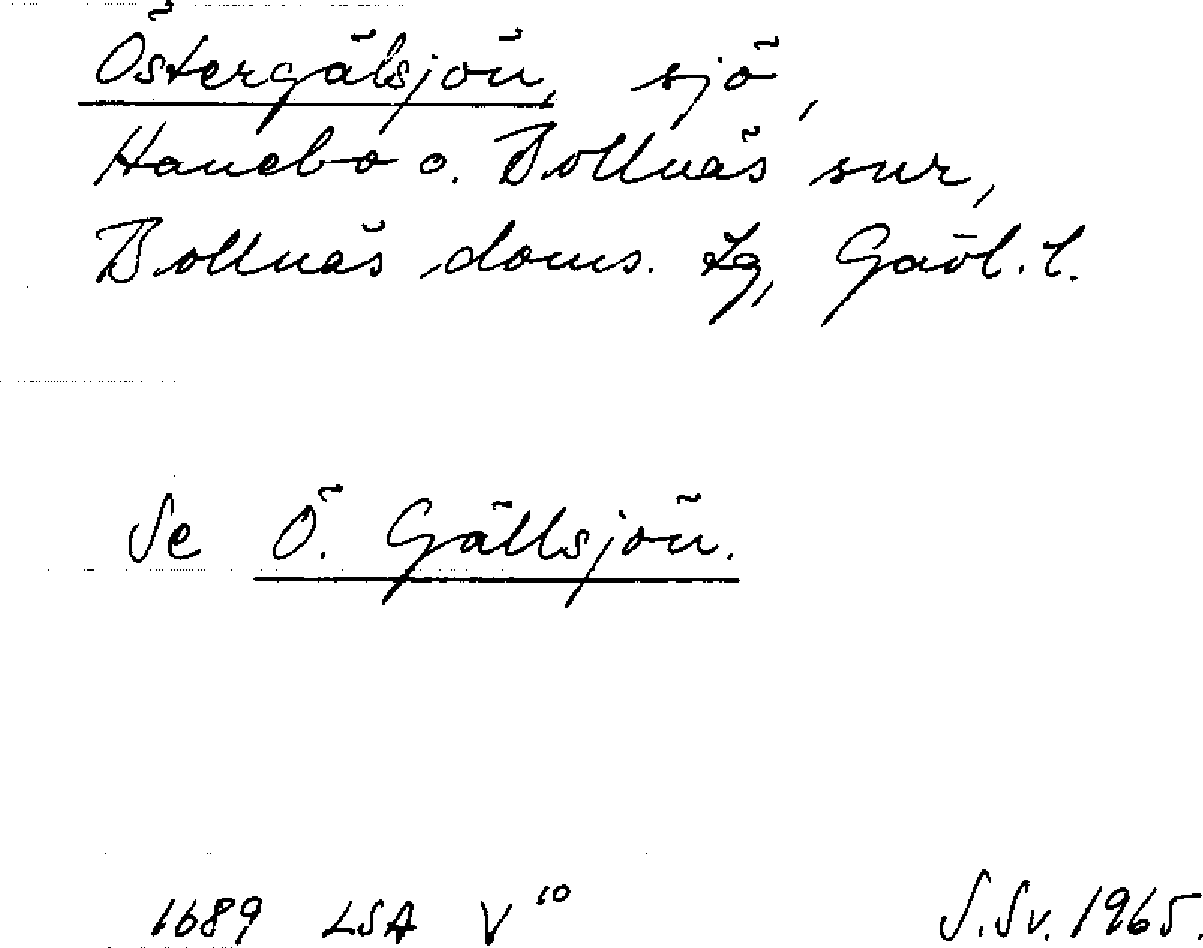 Östergälsjön, sjö,
Hanebo o. Bollnäs snr,
Bollnäs doms. lg, Gävl. l.
Se Ö. Gällsjön.
1689 LSA V¹⁰
S.Sv. 1965.